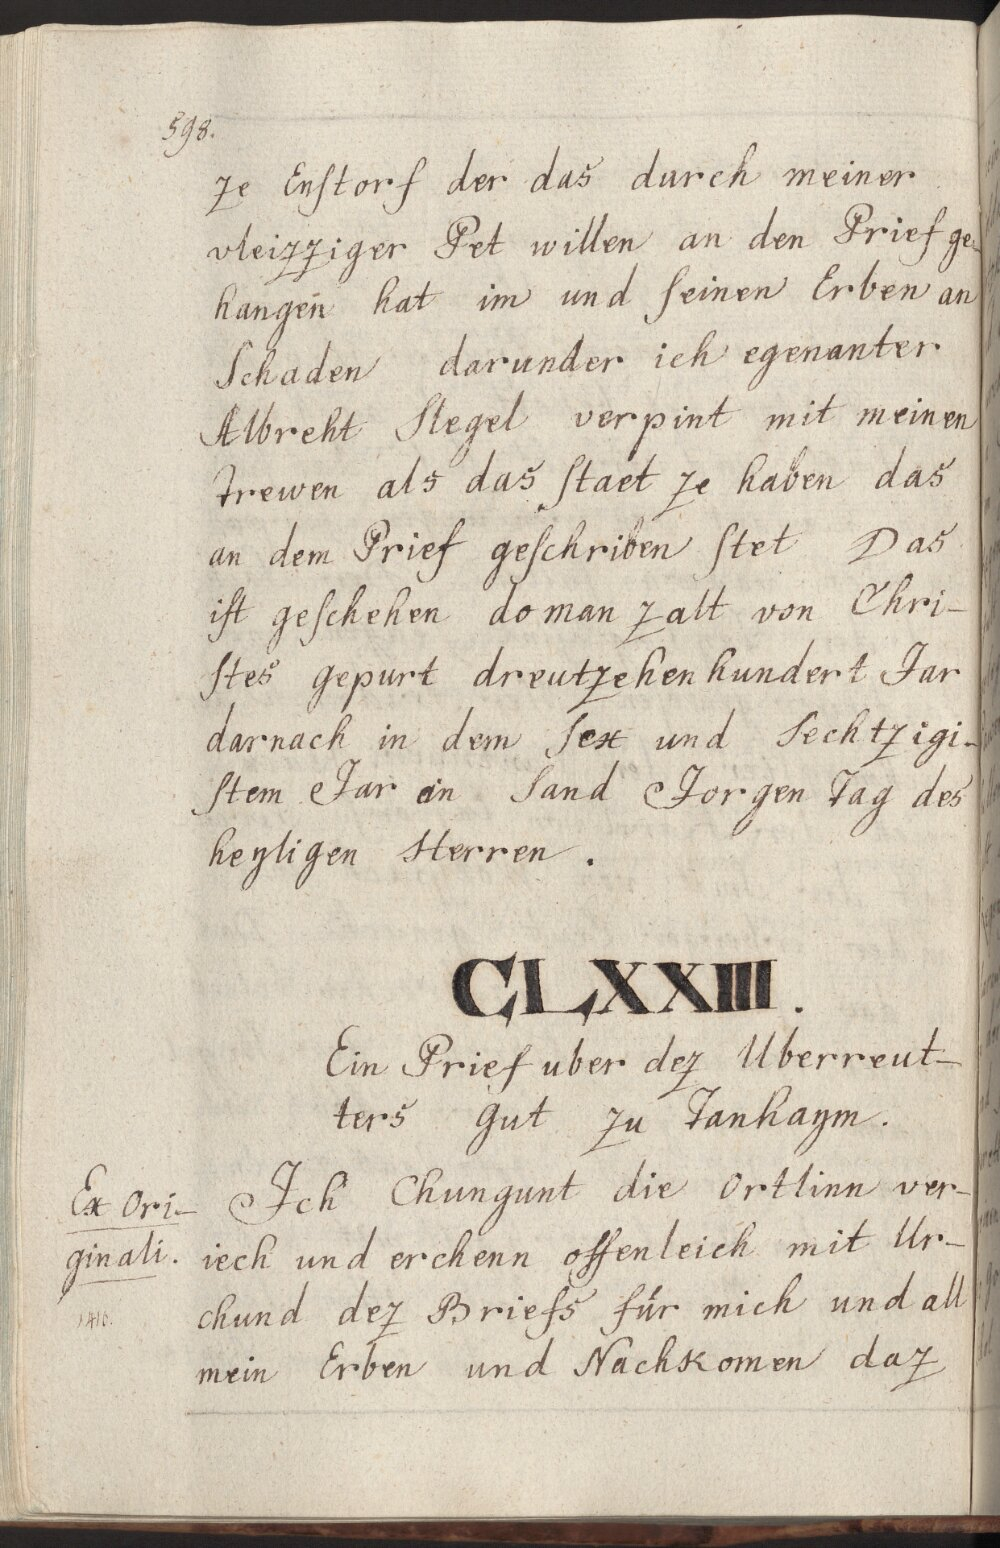 598.
ze Enstorf der das durch meiner
vleizziger Pet willen an den Prief ge-
hangen hat im und seinen Erben an
Schaden darunder ich egenanter
Albreht Stegel verpint mit meinen
trewen als das staet ze haben das
an dem Prief geschriben stet Das
ist geschehen do man zalt von Chri-
stes gepurt dreutzehenhundert Jar
darnach in dem Sex und Sechtzigi-
stem Jar an Sand Jorgen Tag des
heyligen Herren .
CLXXIII.
Ein Prief uber dez Uberreut-
ters Gut zu Tanhaym.
Ex Ori- Ich Chungunt die Ortlinn ver-
ginali. iech und erchenn offenleich mit Ur-
1416. chund dez Briefs für mich und all
mein Erben und Nachkomen daz